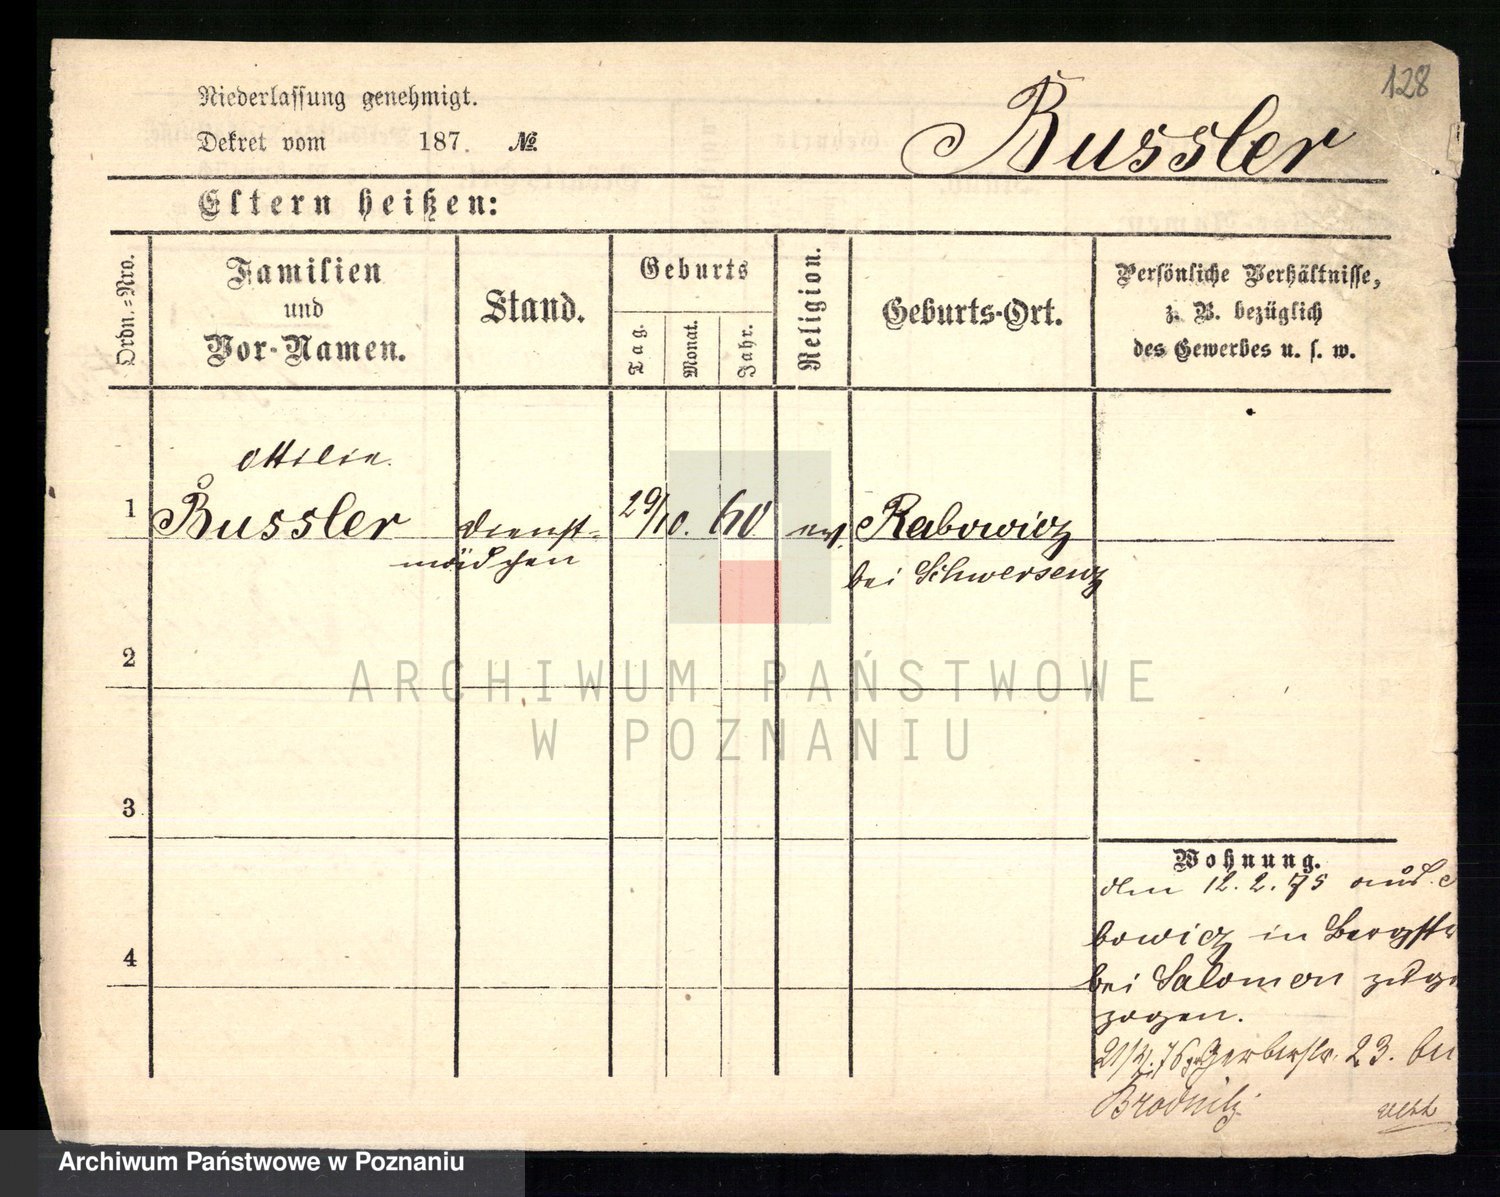 128
Niederlassung genehmigt.
Dekret vom 187. №
Bussler
Eltern heißen:
Ordn.=Nro.
Familien
und
Vor-Namen.
Stand.
Geburts
Tag.
Monat.
Jahr.
Religion.
Geburts-Ort.
Persönliche Verhältnisse,
z. B. bezüglich
des Gewerbes u. s. w.
Ottilie.
1 Bussler Dienst= 29/10. 60 ev. Rabowicz
mädchen bei Schwersenz
2
ARCHIWUM PAŃSTWOWE
W POZNANIU
3
Wohnung.
den 12. 2. 75 aus
bowicz in Bergstr
bei Salomon zuge
zogen.
Gerberstr. 23. bei
Brodnitz
4
Archiwum Państwowe w Poznaniu